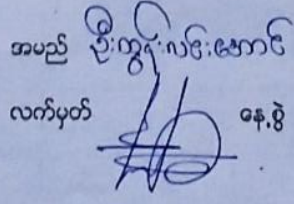 အမည် ဦးထွန်းလင်းအောင်
လက်မှတ် နေ့စွဲ